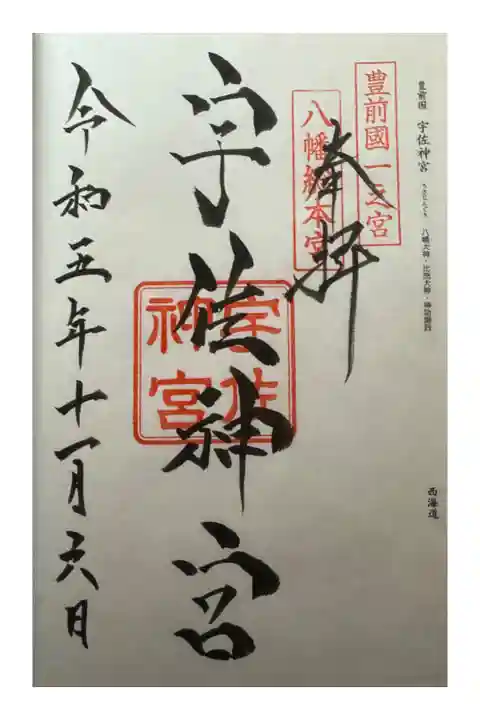 豊前国 宇佐神宮 うさじんぐう 八幡大神・比売大神・神功皇后
西海道
豊前國一之宮
八幡総本宮
奉拝
宇佐神宮
宇佐神宮
令和五年十一月六日